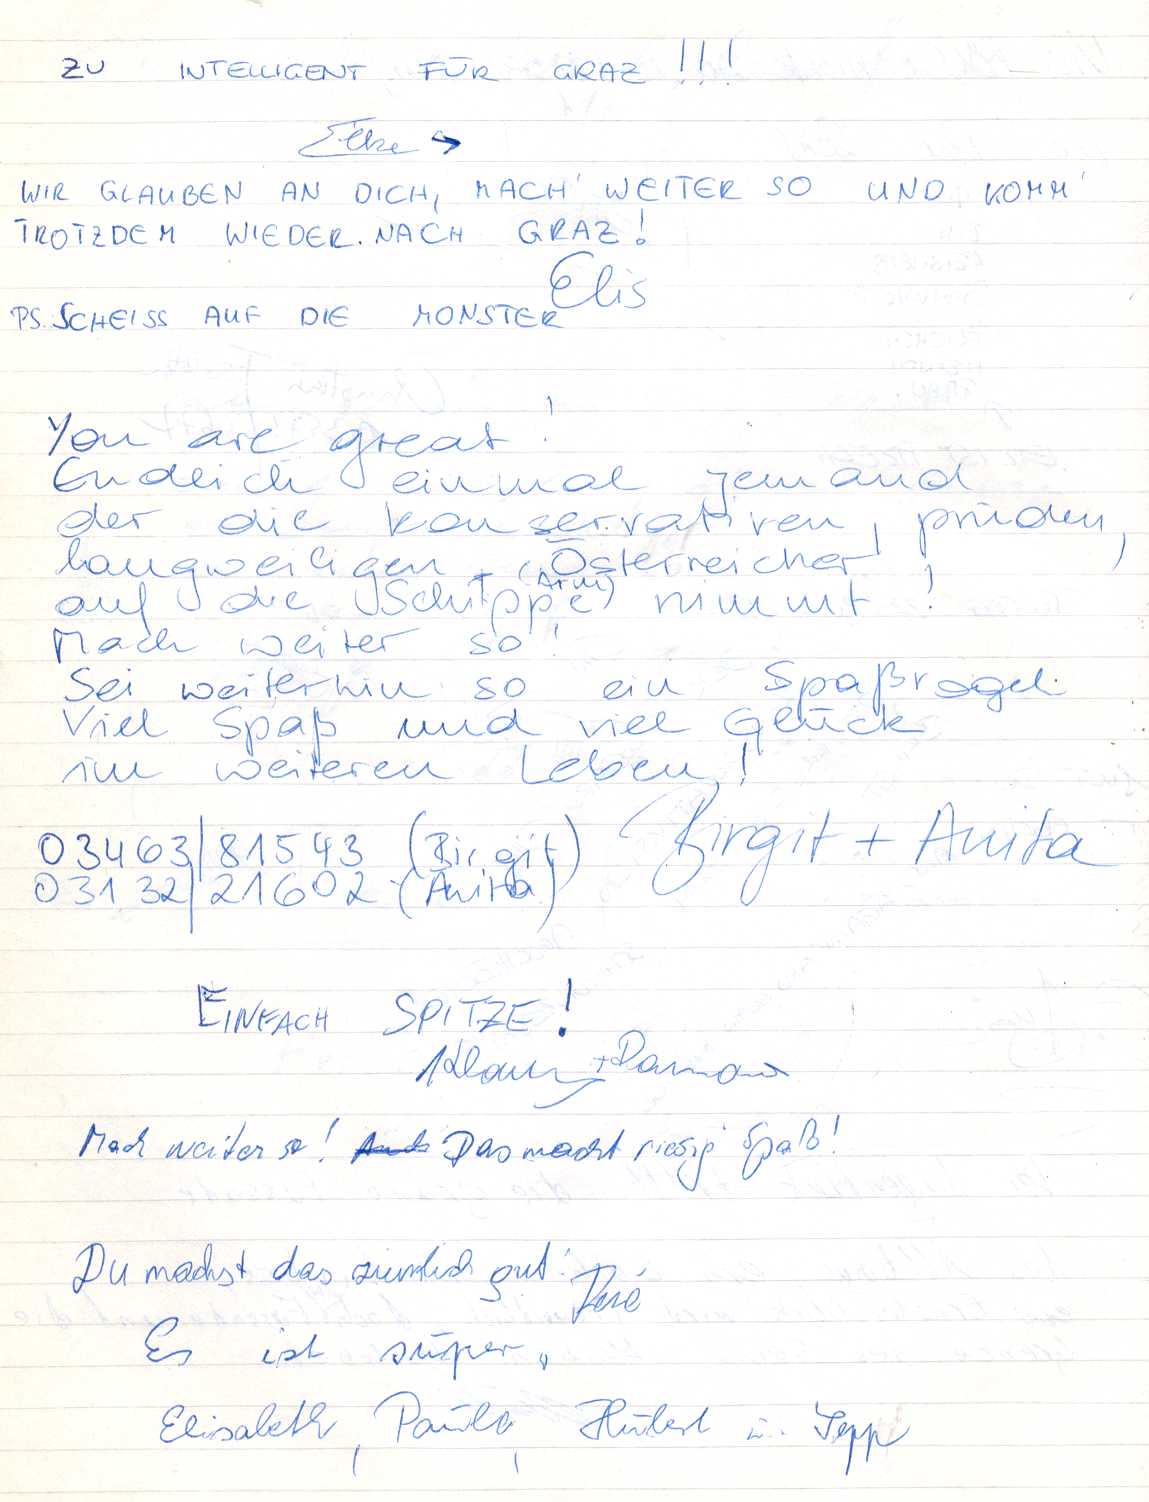 ZU INTELLIGENT FÜR GRAZ !!!
Elke →
WIR GLAUBEN AN DICH, MACH' WEITER SO UND KOMM'
TROTZDEM WIEDER NACH GRAZ!
Elis
PS. SCHEISS AUF DIE MONSTER
You are great!
Endlich einmal jemand
der die konservativen, prüden,
langweiligen Österreicher
auf die Schippe (Arm) nimmt!
Mach weiter so!
Sei weiterhin so ein Spaßvogel.
Viel Spaß und viel Glück
im weiteren Leben!
03463/81543 (Birgit) Birgit + Anita
03132/21602 (Anita)
EINFACH SPITZE!
Klaus +
Mach weiter so! Das macht riesig Spaß!
Du machst das ziemlich gut!
Es ist super.
Elisabeth, Paula, Hubert u. Sepp